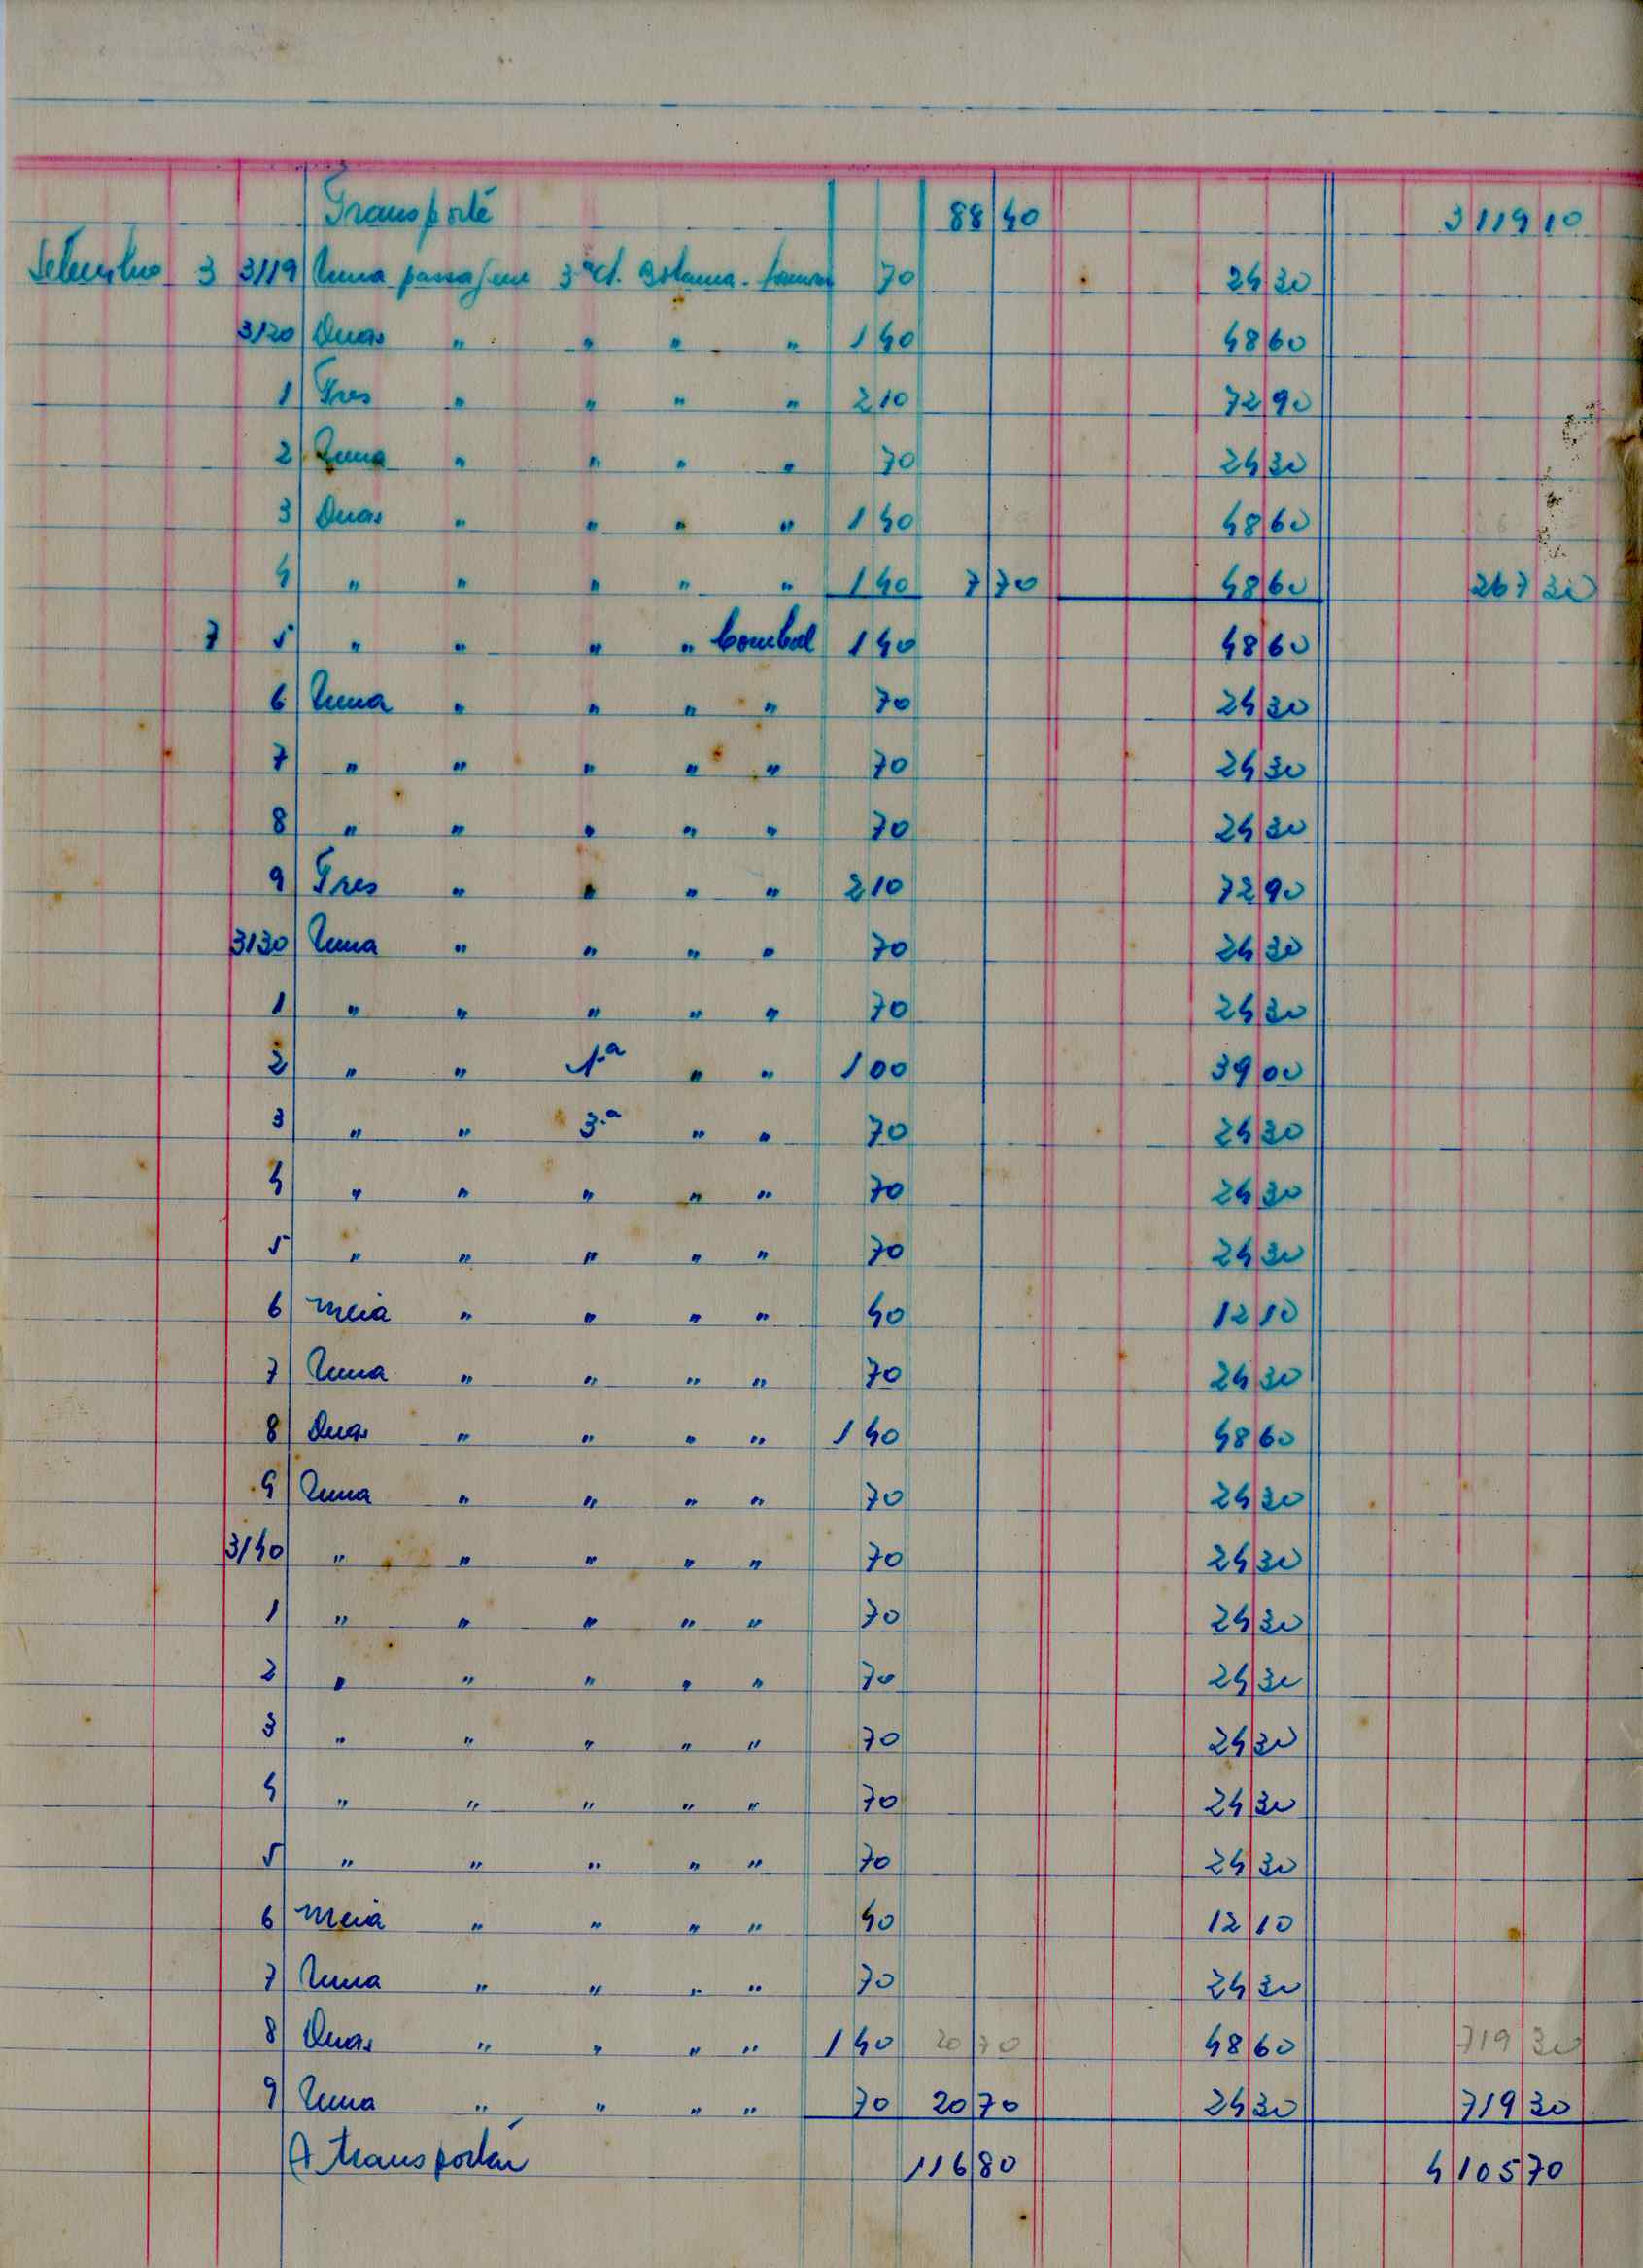 Transporte 88 40 3 119 10
Setembro 3 3119 Uma passagem 3ª cl. Bolama - 70 24 30
3120 Duas " " " " 1 40 48 60
1 Tres " " " " 2 10 72 90
2 Uma " " " " 70 24 30
3 Duas " " " " 1 40 48 60
4 " " " " " 1 40 7 70 48 60 267 30
7 5 " " " " 1 40 48 60
6 Uma " " " " 70 24 30
7 " " " " " 70 24 30
8 " " " " " 70 24 30
9 Tres " " " " 2 10 72 90
3130 Uma " " " " 70 24 30
1 " " " " " 70 24 30
2 " " 1ª " " 1 00 39 00
3 " " 3ª " " 70 24 30
4 " " " " " 70 24 30
5 " " " " " 70 24 30
6 Meia " " " " 40 12 10
7 Uma " " " " 70 24 30
8 Duas " " " " 1 40 48 60
9 Uma " " " " 70 24 30
3140 " " " " " 70 24 30
1 " " " " " 70 24 30
2 " " " " " 70 24 30
3 " " " " " 70 24 30
4 " " " " " 70 24 30
5 " " " " " 70 24 30
6 Meia " " " " 40 12 10
7 Uma " " " " 70 24 30
8 Duas " " " " 1 40 20 70 48 60 719 30
9 Uma " " " " 70 20 70 24 30 719 30
A transportar 116 80 4 105 70